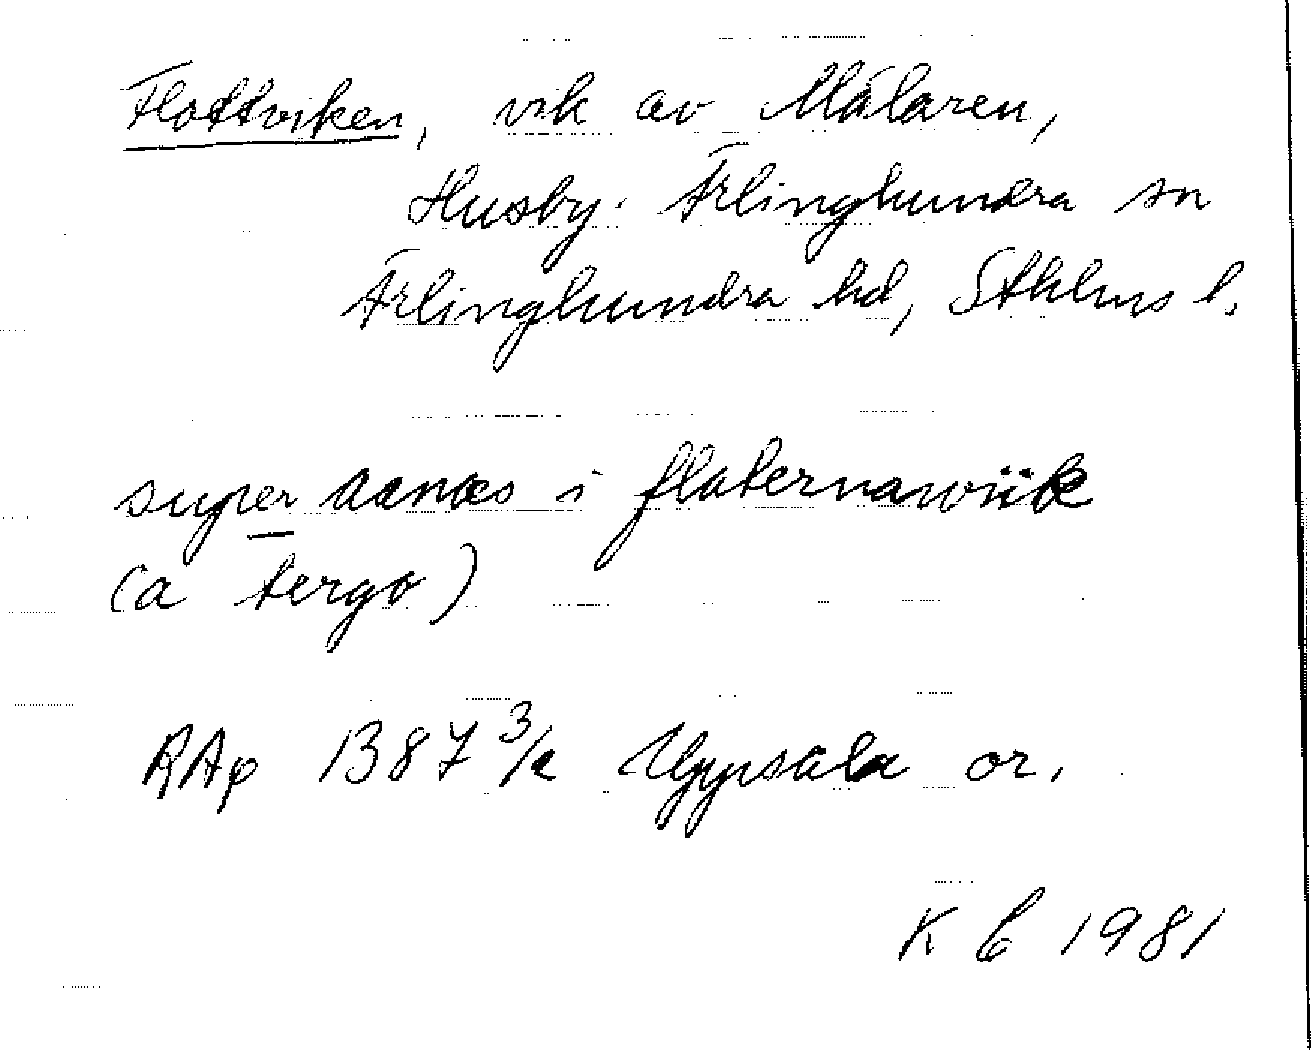 Flottviken, vik av Mälaren,
Husby-Ärlinghundra sn
Ärlinghundra hd, Sthlms l.
super aanæs i flaternawiik
(a tergo)
RAp 1387 3/2 Uppsala or.
K C 1981